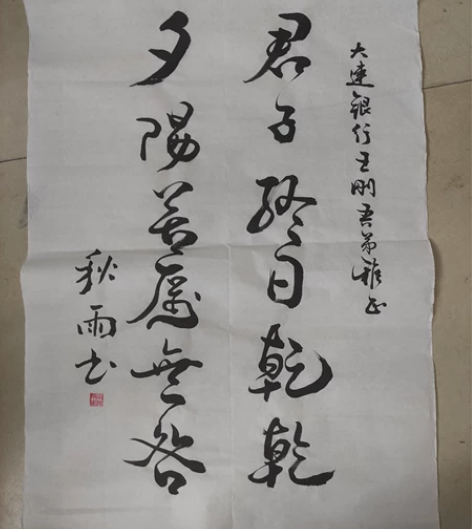 大連銀行王刚吾弟雅正
君子終日乾乾
夕陽若厲無咎
秋雨书